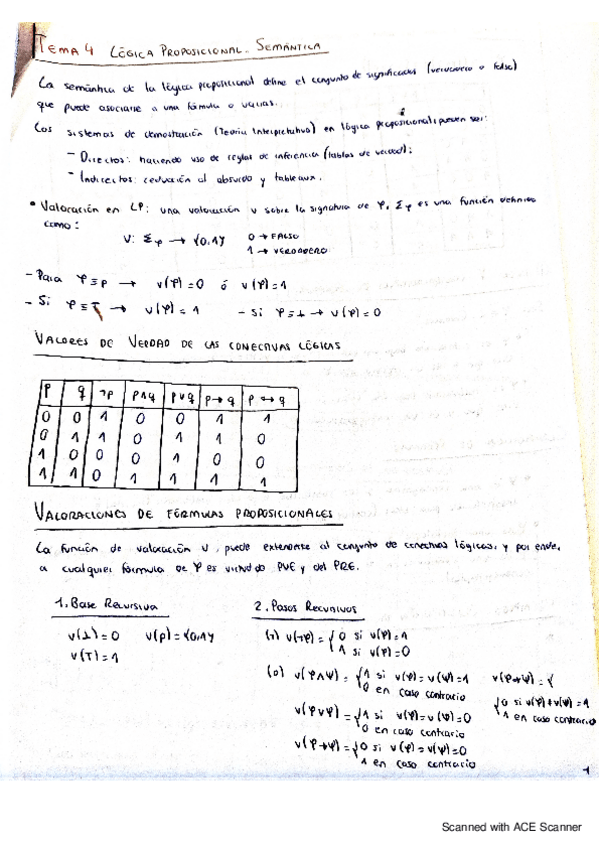 TEMA 4 LÓGICA PROPOSICIONAL. SEMÁNTICA
La semántica de la lógica proposicional define el conjunto de significados (verdadero o falso)
que puede asociarse a una fórmula o varias.
Los sistemas de demostración (Teoría Interpretativa) en lógica proposicional, pueden ser:
- Directos: haciendo uso de reglas de inferencia (tablas de verdad).
- Indirectos: reducción al absurdo y tableaux.
• Valoración en LP: una valoración v sobre la signatura de φ, Σφ es una función definida
como:
V: Σφ → {0,1} 0 → FALSO
1 → VERDADERO
- Para φ ≡ p → v(φ) = 0 ó v(φ) = 1
- Si φ ≡ T → v(φ) = 1 - Si φ ≡ ⊥ → v(φ) = 0
VALORES DE VERDAD DE LAS CONECTIVAS LÓGICAS
p q ¬p p∧q p∨q p→q p↔q
0 0 1 0 0 1 1
0 1 1 0 1 1 0
1 0 0 0 1 0 0
1 1 0 1 1 1 1
VALORACIONES DE FÓRMULAS PROPOSICIONALES
La función de valoración v, puede extenderse al conjunto de conectivas lógicas, y por ende,
a cualquier fórmula de φ es virtud do PUE y del PRE.
1. Base Recursiva 2. Pasos Recursivos
v(⊥) = 0 v(p) = {0,1}
v(T) = 1
(¬) v(¬φ) = { 0 si v(φ) = 1
1 si v(φ) = 0
(o) v(φ∧ψ) = { 1 si v(φ) = v(ψ) = 1
0 en caso contrario
v(φ∨ψ) = { 1 si v(φ) = v(ψ) = 0
0 en caso contrario
v(φ→ψ) = { 0 si v(φ) = v(ψ) = 0
1 en caso contrario
v(φ↔ψ) = {
{ 0 si v(φ) ≠ v(ψ) = 1
1 en caso contrario
1
Scanned with ACE Scanner